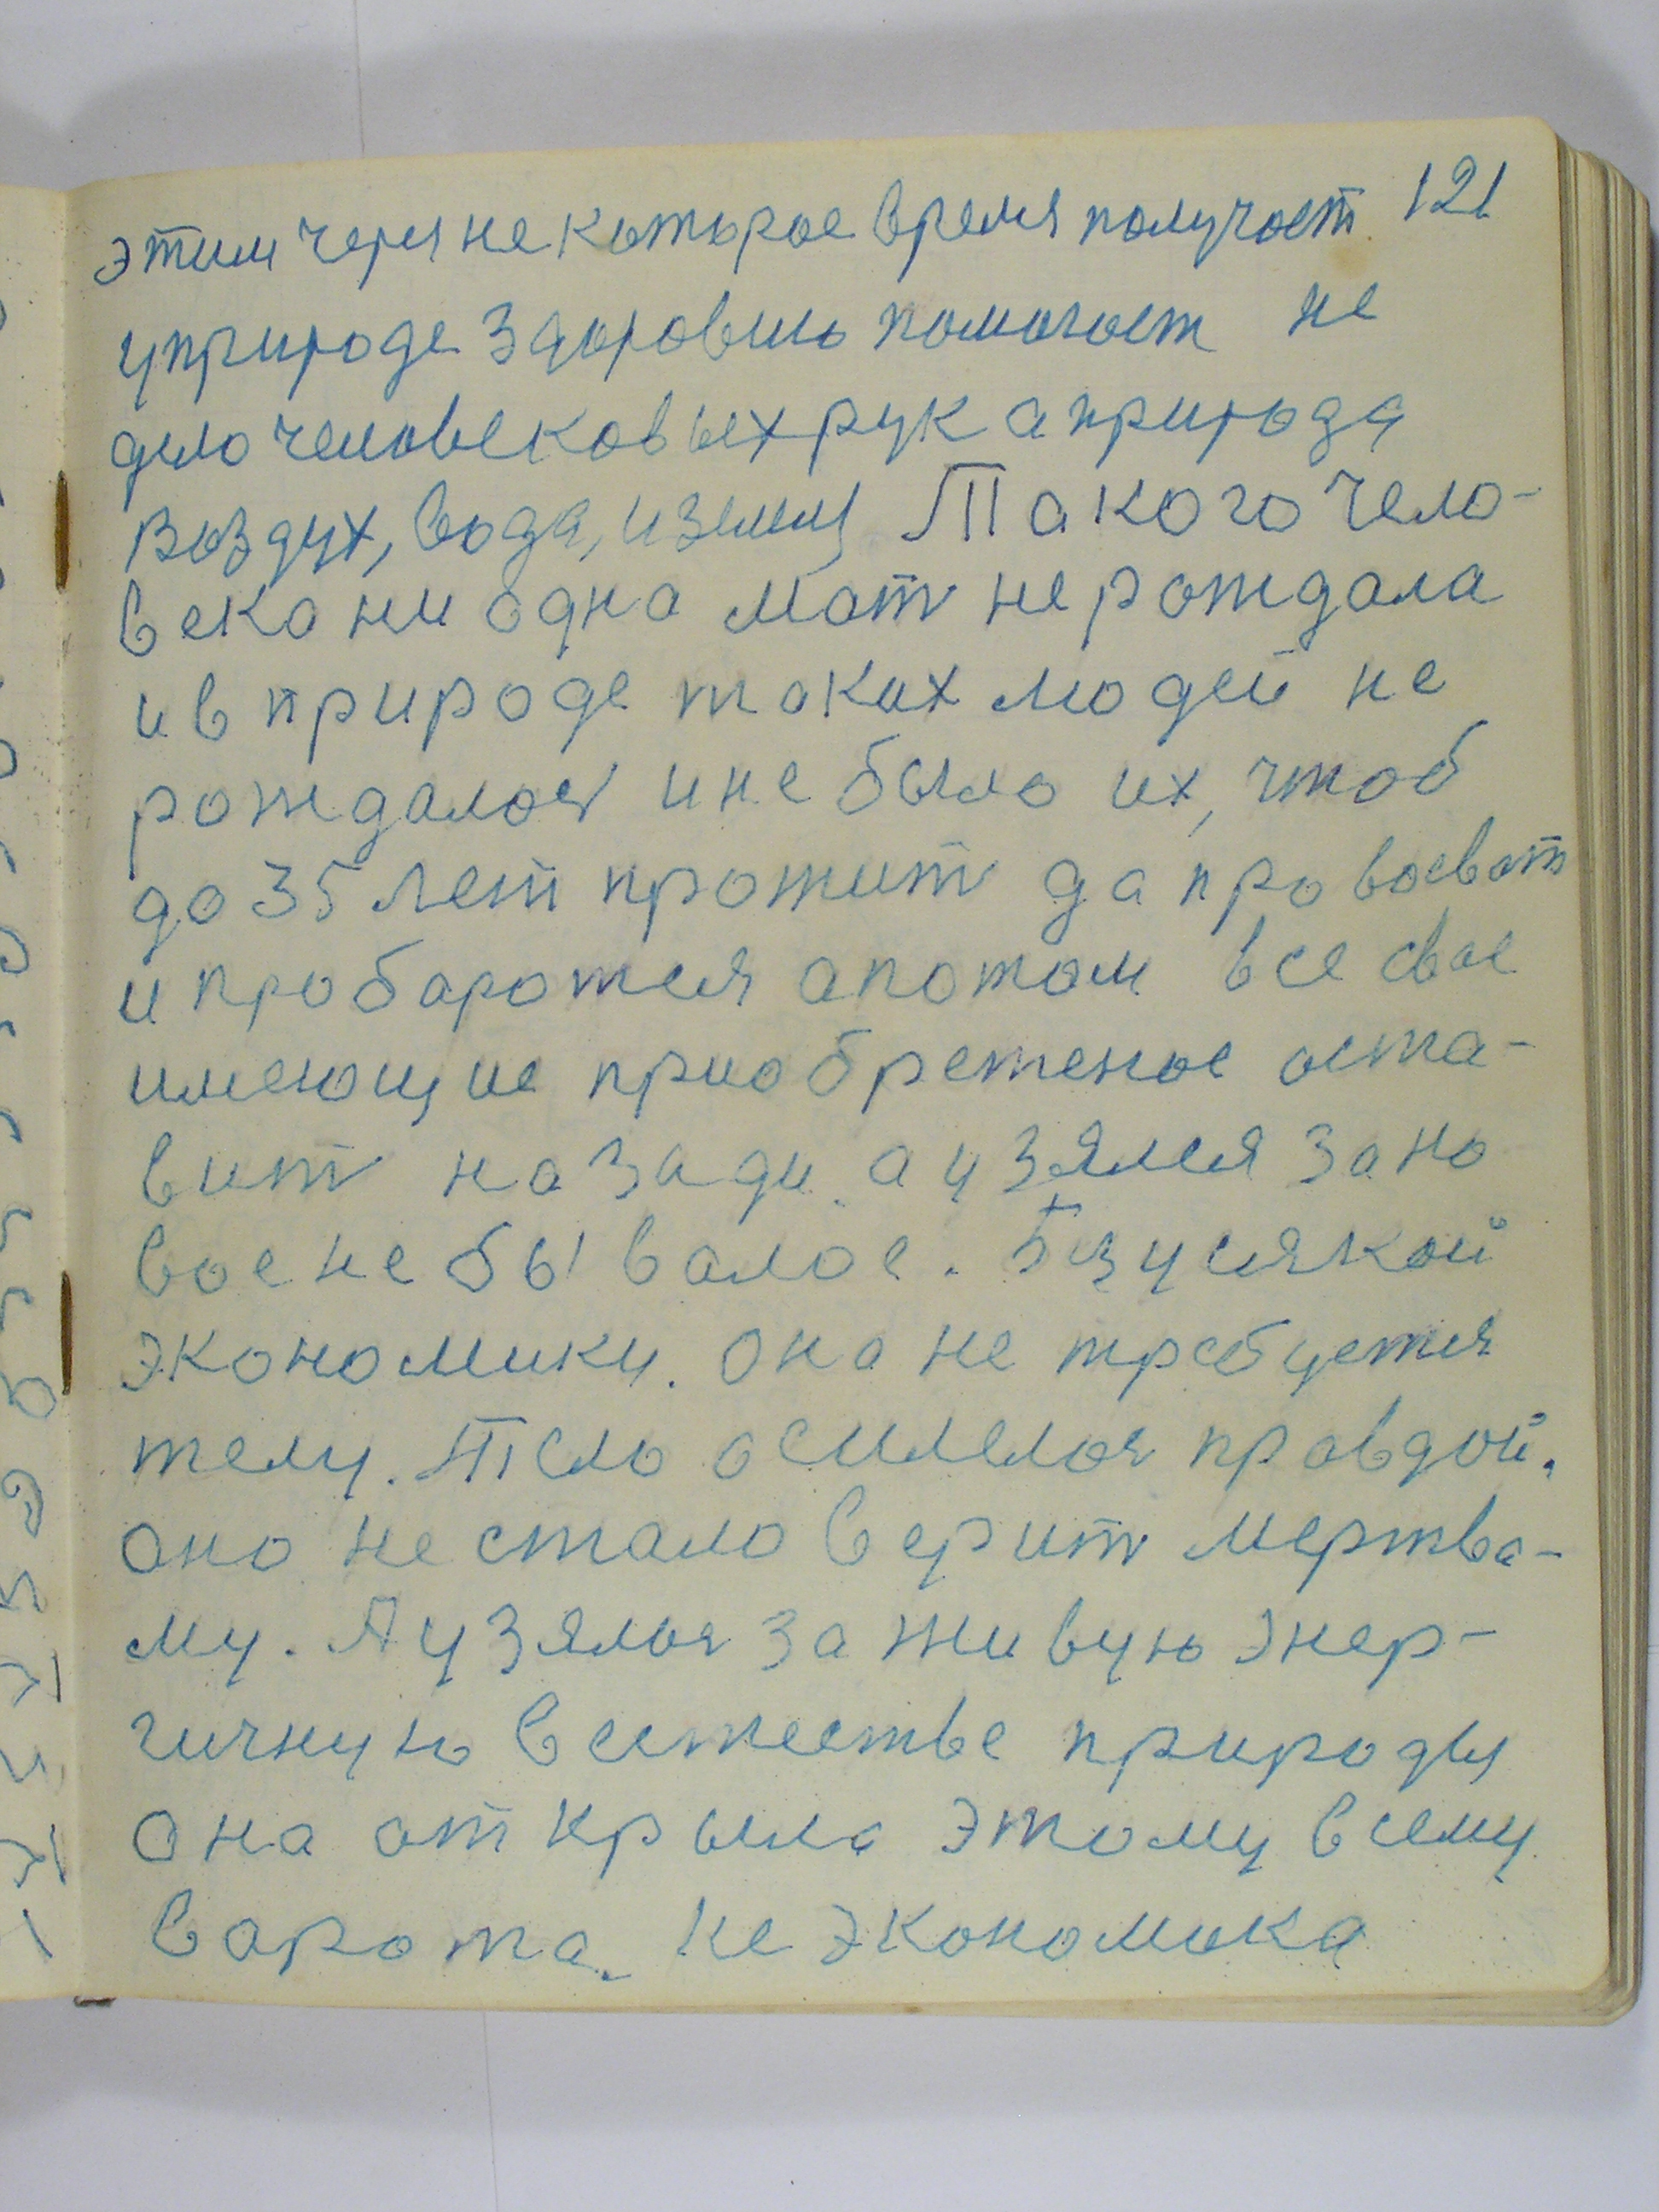 этим через некоторое время получает 121
у природе здоровию помогает не
дело человековых рук а природа
воздух, вода, и земля Такого чело-
века ни одна мать не рождала
и в природе таких людей не
рождалося и не было их, чтоб
до 35 лет прожить да провоевать
и пробаротся а потом все свое
имеющие приобретеное оста-
вить назади. а узялся за но
вое небывалое. Без усякой
экономики. Она не требуется
телу. Тело осилелося правдой.
Оно не стало верить мертва-
му. А узялося за живую энер-
гичную в естестве природы
Она открыла этому всему
варота. Не экономика